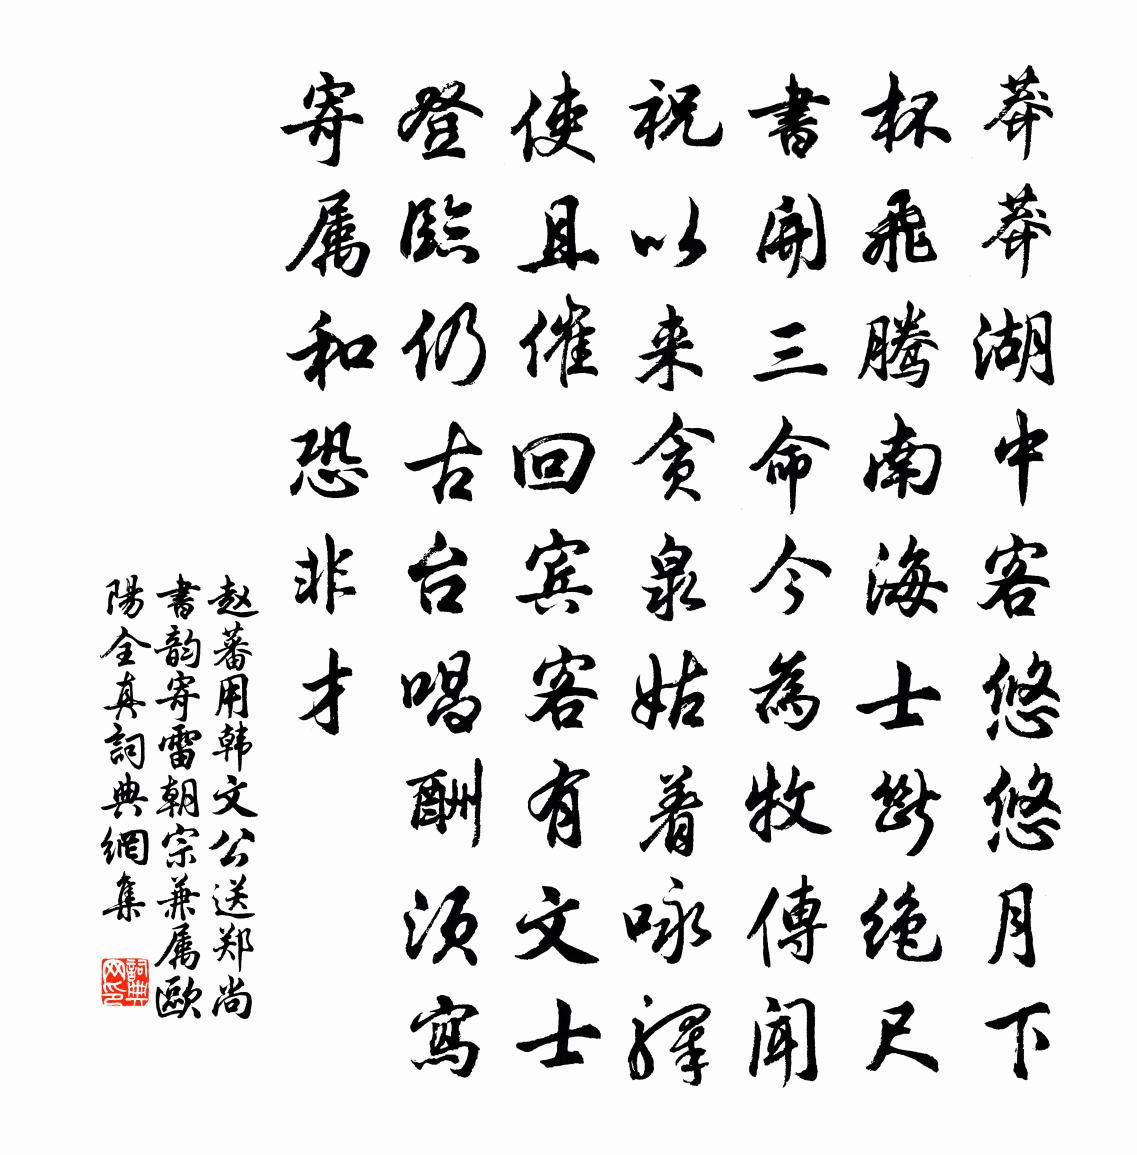 莽莽湖中客悠悠月下
杯飛腾南海士断绝尺
書開三命今為牧傳闻
祝以来贪泉姑着咏驿
使且催回宾客有文士
登臨仍古台唱酬须寫
寄属和恐非才
赵蕃用韩文公送郑尚
書韵寄雷朝宗兼属歐
陽全真詞典網集
詞典网印